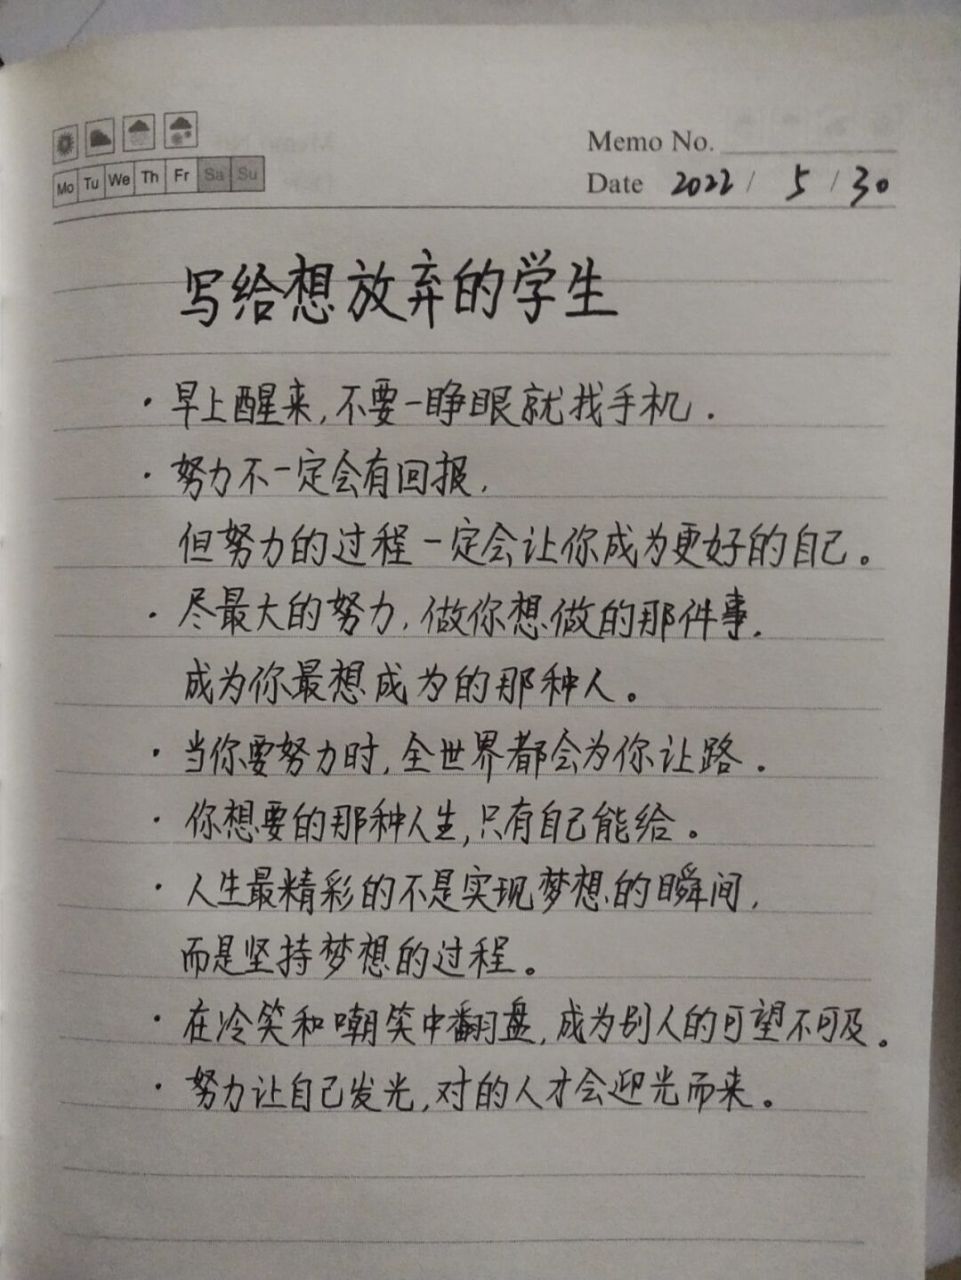 Memo No.
Mo Tu We Th Fr Sa Su
Date 2022 / 5 / 30
写给想放弃的学生
· 早上醒来,不要一睁眼就找手机.
· 努力不一定会有回报,
但努力的过程一定会让你成为更好的自己。
· 尽最大的努力,做你想做的那件事,
成为你最想成为的那种人。
· 当你要努力时,全世界都会为你让路.
· 你想要的那种人生,只有自己能给。
· 人生最精彩的不是实现梦想的瞬间,
而是坚持梦想的过程。
· 在冷笑和嘲笑中翻盘,成为别人的可望不可及。
· 努力让自己发光,对的人才会迎光而来。